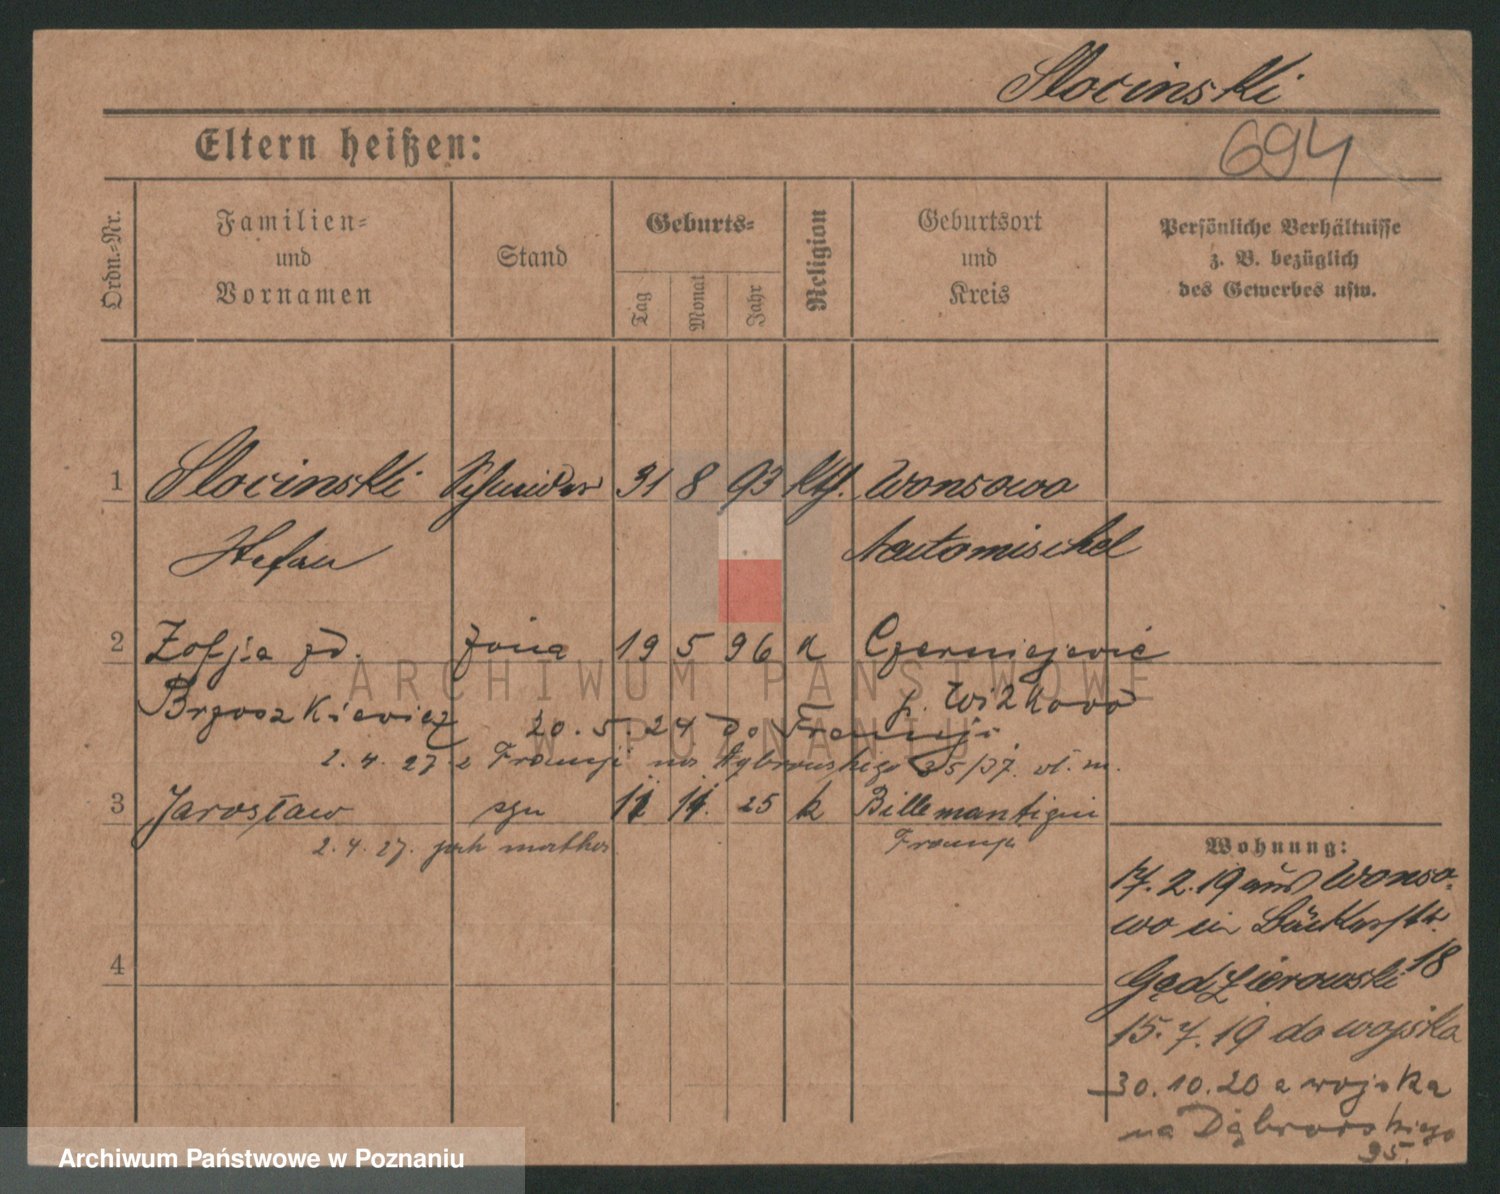 Slocinski
694
Eltern heißen:
Ordn.-Nr.
Familien-
und
Vornamen
Stand
Geburts-
Tag
Monat
Jahr
Religion
Geburtsort
und
Kreis
Persönliche Verhältnisse
z. B. bezüglich
des Gewerbes usw.
1 Slocinski Schneider 31 8 93 kth. Wonsowo
Stefan Neutomischel
2 Zofja zd. żona 19 5 96 k
Brzoszkiewicz p. Witkowo
20.5.24 do Francji
2.4.27 z Francji na Dąbrowskiego 35/37
3 Jarosław syn 11 25 k Billemantigni
2.4.27. jak matka Francja
4
Wohnung:
17.2.19 aus Wonso-
wo in Bäckerstr.
18
Gądzierowski
15.7.19 do wojska
30.10.20 z wojska
na Dąbrowskiego
95.
ARCHIWUM PAŃSTWOWE
W POZNANIU
Archiwum Państwowe w Poznaniu